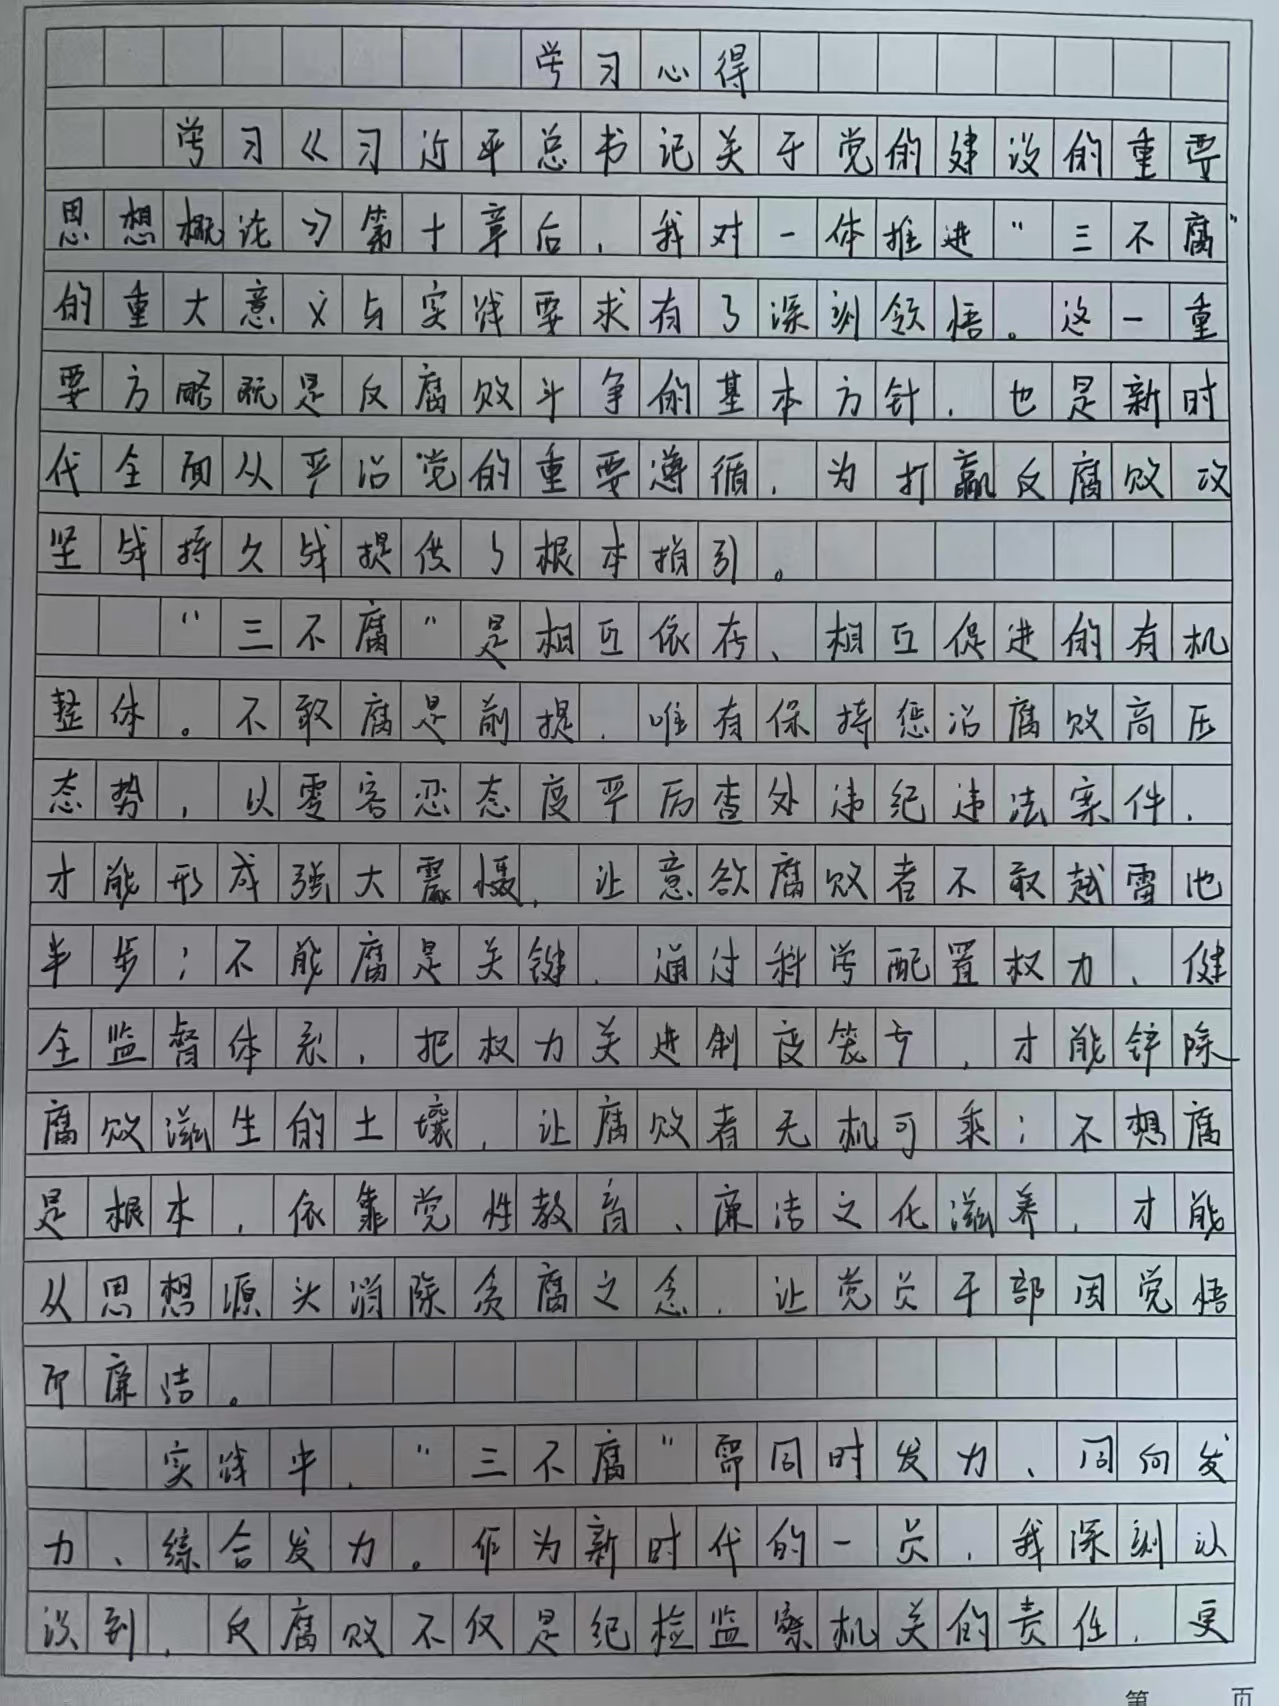 学习心得
学习《习近平总书记关于党的建设的重要
思想概论》第十章后，我对一体推进“三不腐”
的重大意义与实践要求有了深刻领悟。这一重
要方略既是反腐败斗争的基本方针，也是新时
代全面从严治党的重要遵循，为打赢反腐败攻
坚战持久战提供了根本指引。
“三不腐”是相互依存、相互促进的有机
整体。不敢腐是前提，唯有保持惩治腐败高压
态势，以零容忍态度严厉查处违纪违法案件，
才能形成强大震慑，让意欲腐败者不敢越雷池
半步；不能腐是关键，通过科学配置权力、健
全监督体系，把权力关进制度笼子，才能铲除
腐败滋生的土壤，让腐败者无机可乘；不想腐
是根本，依靠党性教育、廉洁文化滋养，才能
从思想源头消除贪腐之念，让党员干部因觉悟
而廉洁。
实践中，“三不腐”需同时发力、同向发
力、综合发力。作为新时代的一员，我深刻认
识到，反腐败不仅是纪检监察机关的责任，更
第 页